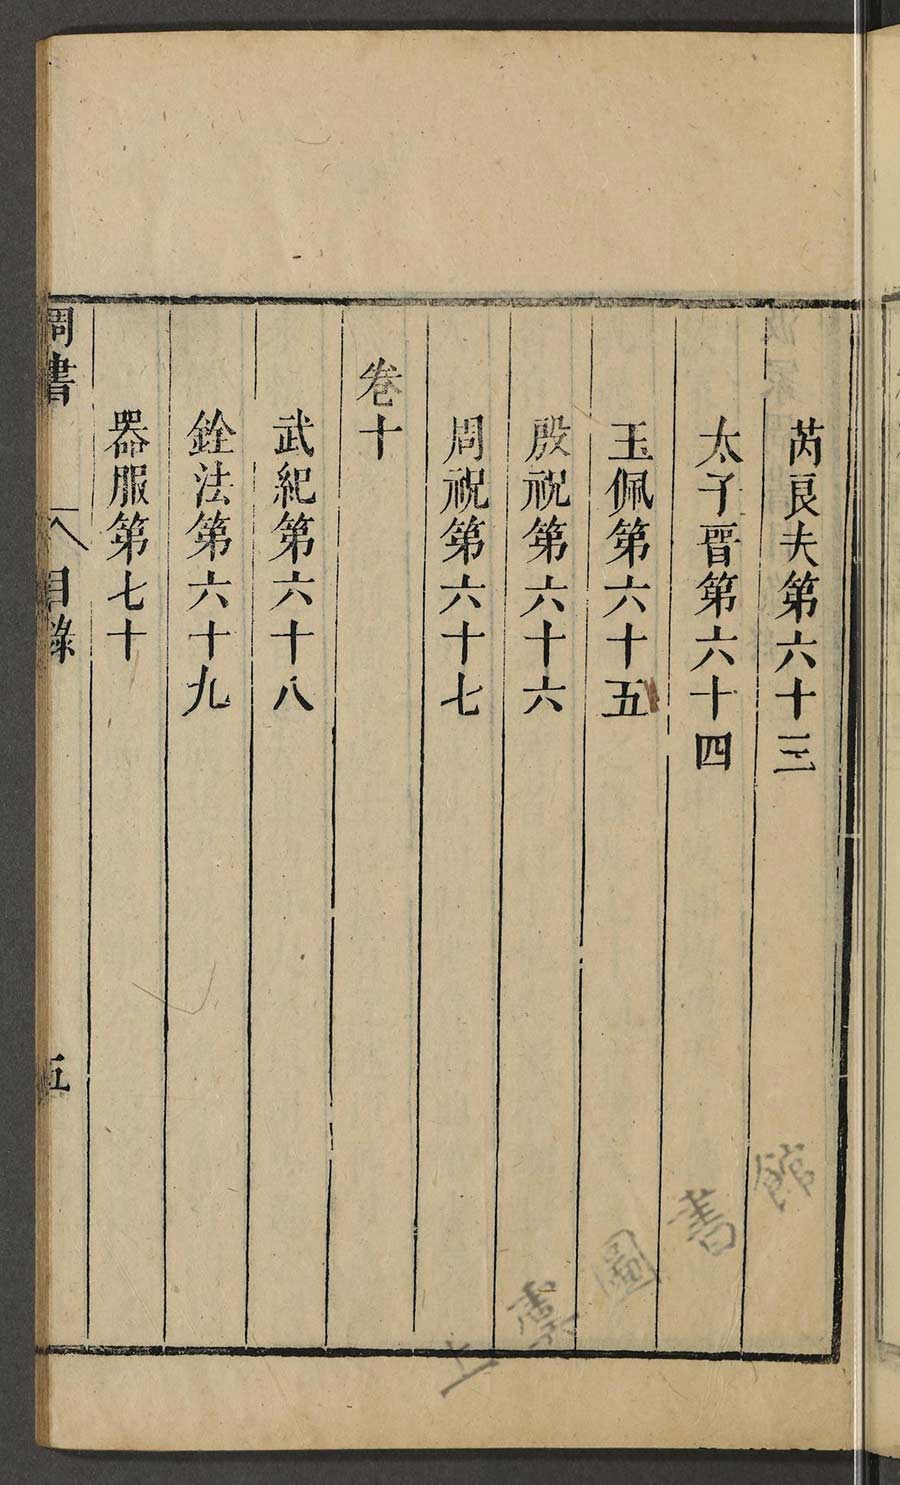 芮良夫第六十三
太子晉第六十四
玉佩第六十五
殷祝第六十六
周祝第六十七
卷十
武紀第六十八
銓法第六十九
器服第七十
周書
目錄
五
上虞圖書館